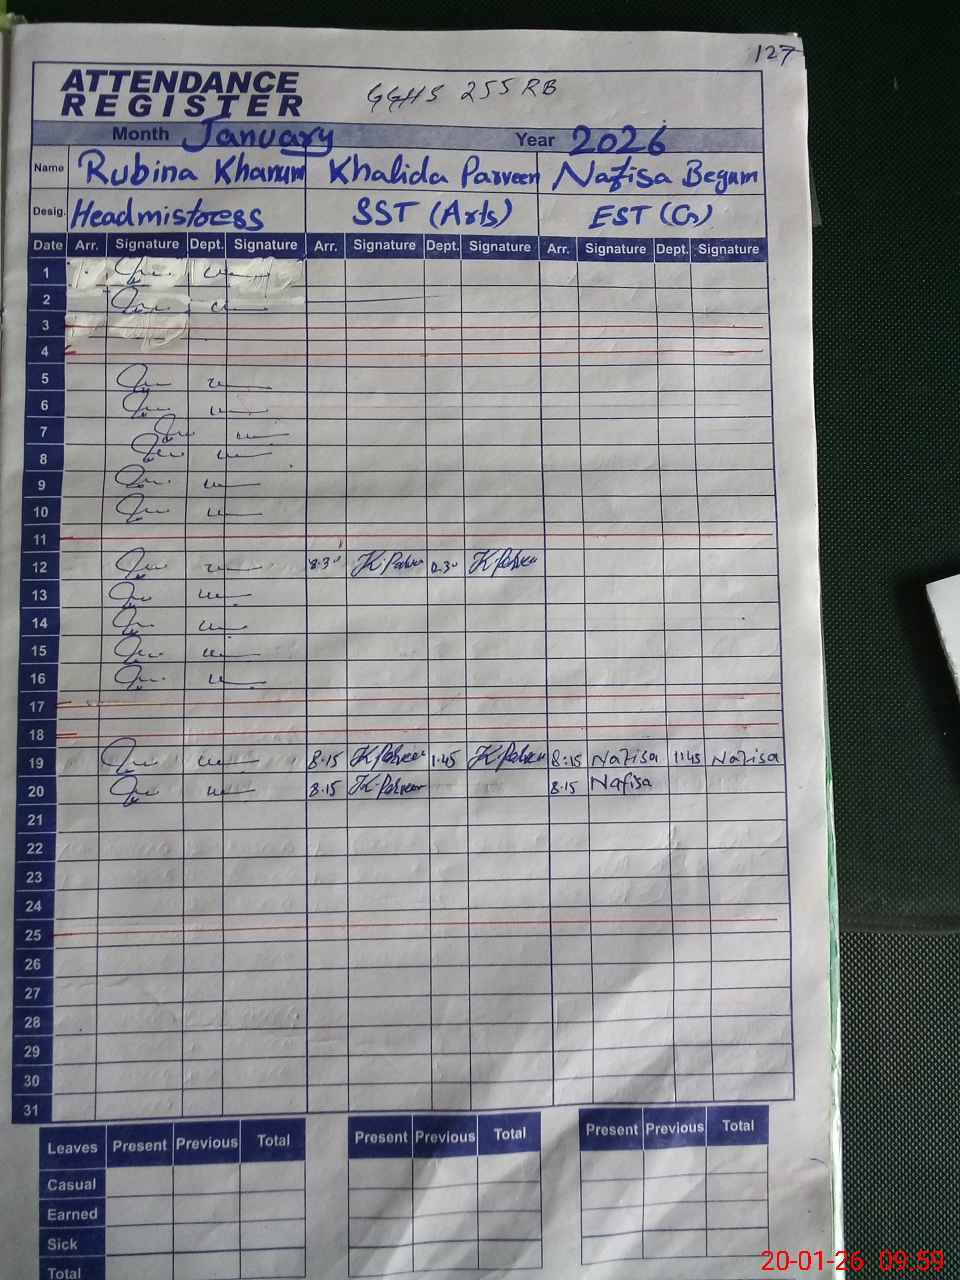 127
ATTENDANCE
REGISTER
GGHS 255 RB
Month January Year 2026
Name Rubina Khanum Khalida Parveen Nafisa Begum
Desig. Headmistress SST (Arts) EST (Cr)
Date Arr. Signature Dept. Signature Arr. Signature Dept. Signature Arr. Signature Dept. Signature
1
2
3
4
5
6
7
8
9
10
11
12 8.30 K.Parveen 2.30 K.Parveen
13
14
15
16
17
18
19 8.15 K.Parveen 1.45 K.Parveen 8:15 Nafisa 1:45 Nafisa
20 8.15 K.Parveen 8.15 Nafisa
21
22
23
24
25
26
27
28
29
30
31
Leaves Present Previous Total Present Previous Total Present Previous Total
Casual
Earned
Sick
Total
20-01-26 09:59